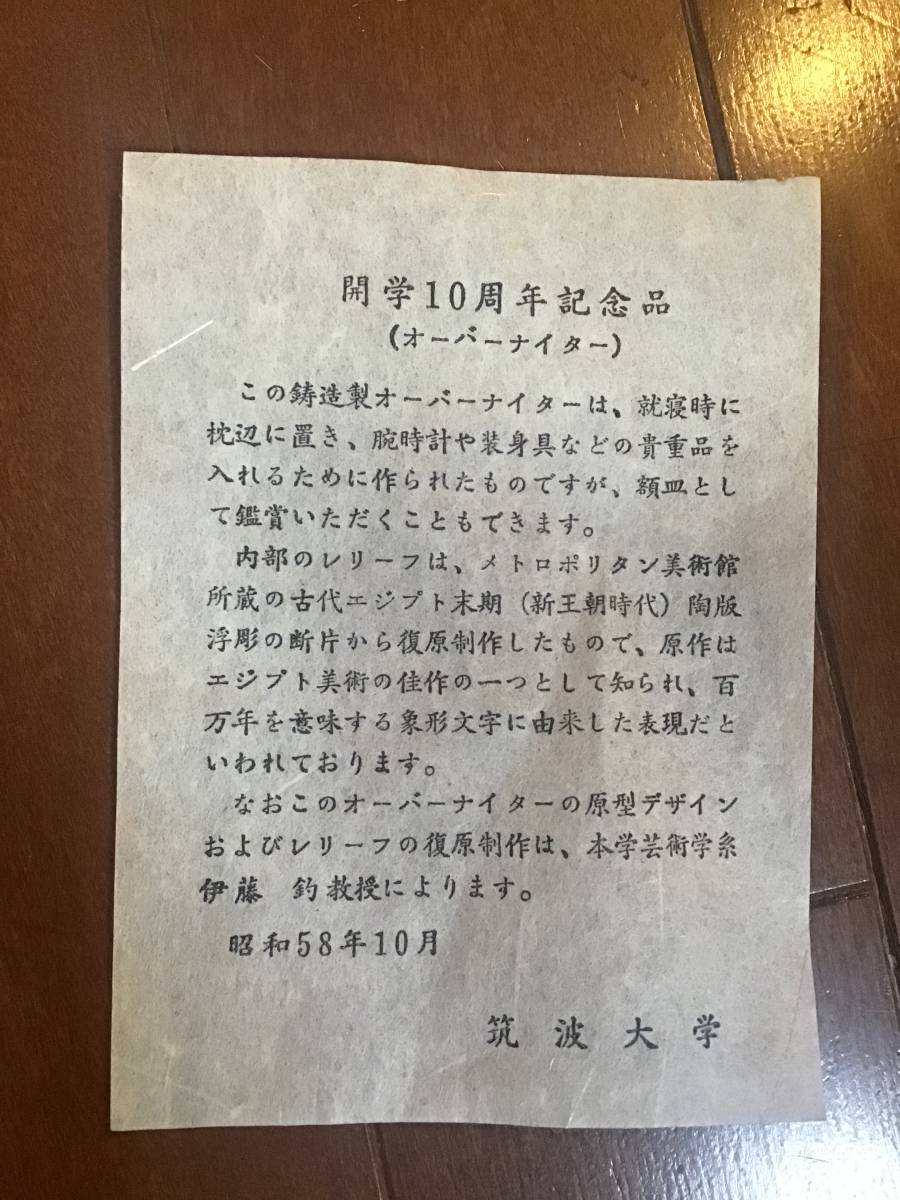 開学10周年記念品
(オーバーナイター)
この鋳造製オーバーナイターは、就寝時に
枕辺に置き、腕時計や装身具などの貴重品を
入れるために作られたものですが、額皿とし
て鑑賞いただくこともできます。
内部のレリーフは、メトロポリタン美術館
所蔵の古代エジプト末期(新王朝時代)陶版
浮彫の断片から復原制作したもので、原作は
エジプト美術の佳作の一つとして知られ、百
万年を意味する象形文字に由来した表現だと
いわれております。
なおこのオーバーナイターの原型デザイン
およびレリーフの復原制作は、本学芸術学系
伊藤 釣教授によります。
昭和58年10月
筑波大学